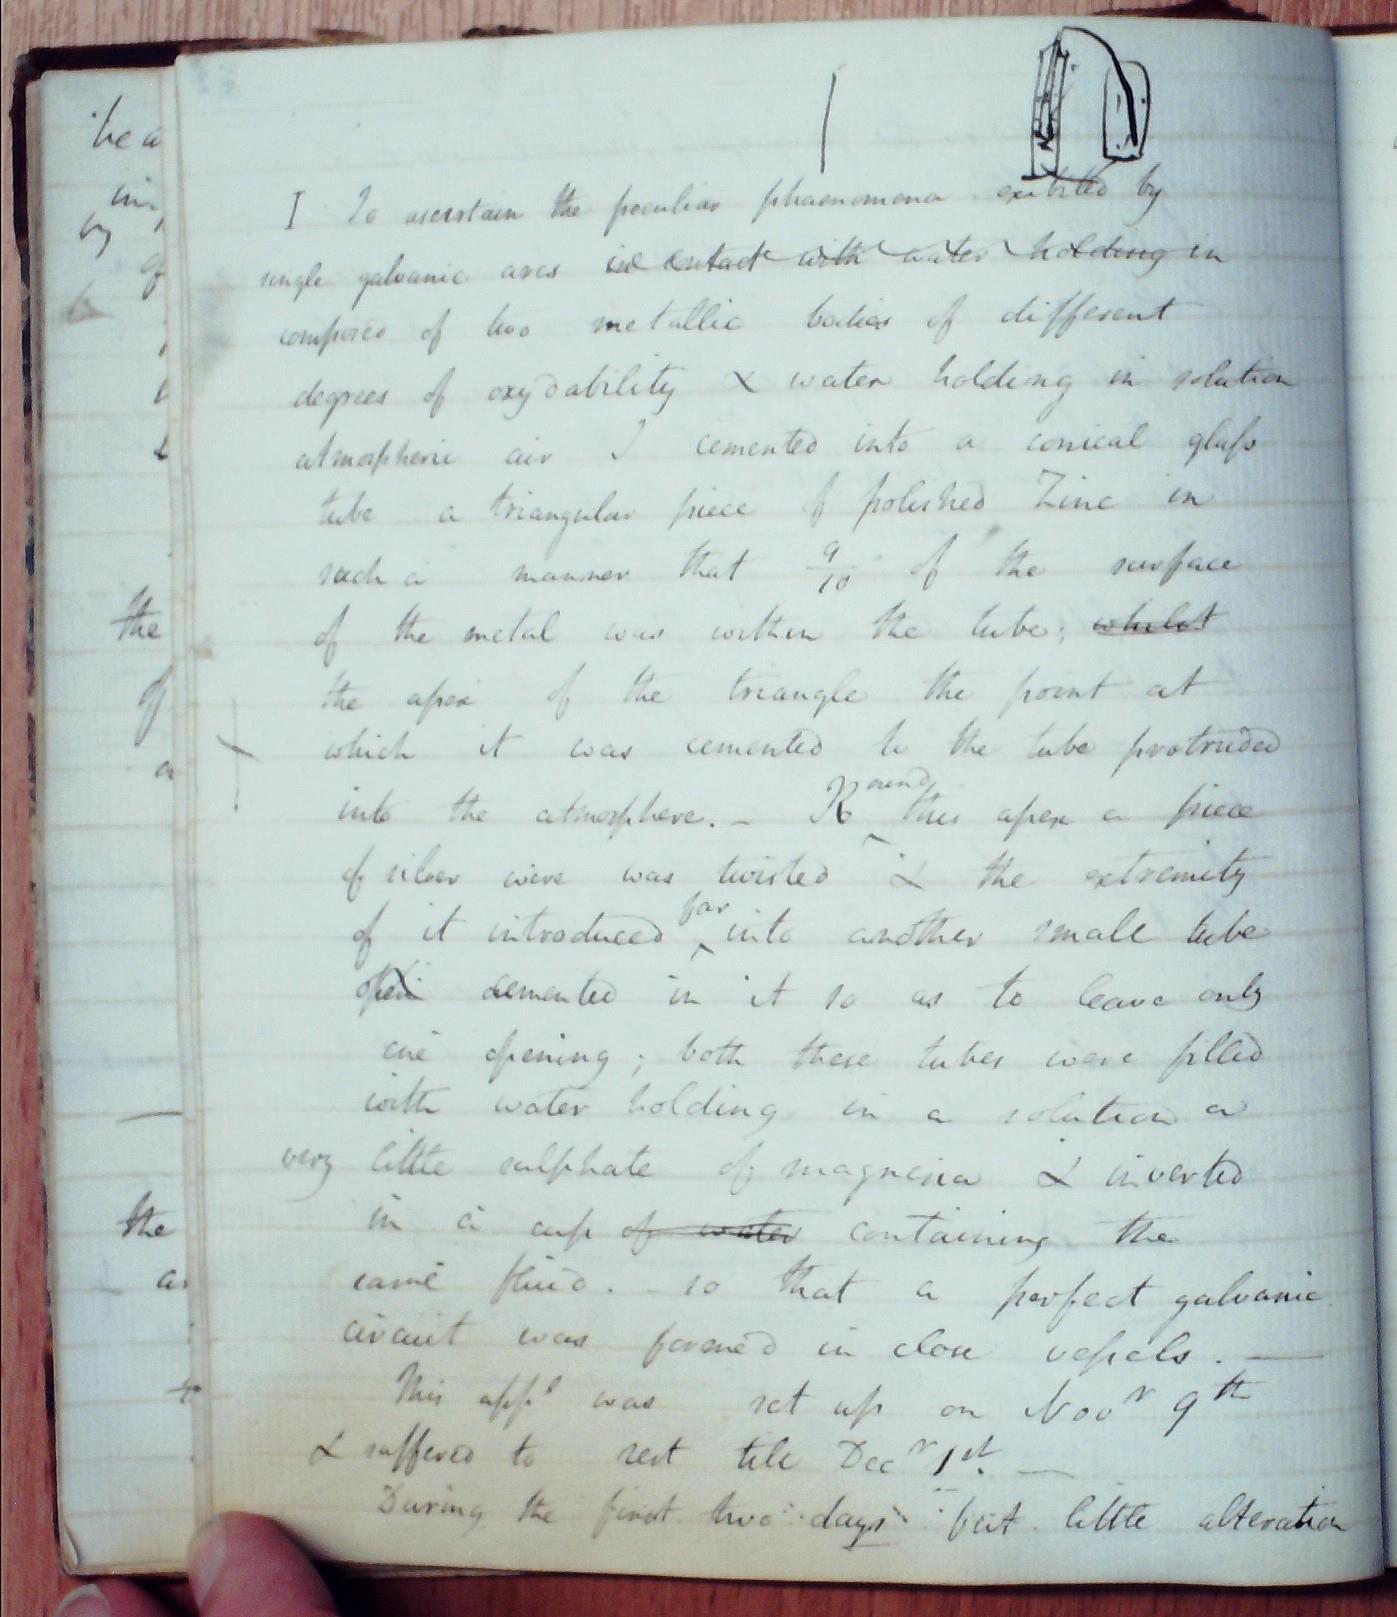 be a
in
by
of
the
of
a
the
a
I To ascertain the peculiar phaenomena exibited by
single galvanic arcs in contact with water holding in
composed of two metallic bodies of different
degrees of oxydability & water holding in solution
atmospheric air I cemented into a conical glass
tube a triangular piece of polished Zinc in
such a manner that 9/10 of the surface
of the metal was within the tube; whilst
the apex of the triangle the point at
which it was cemented to the tube protruded
into the atmosphere. – Round this apex a piece
of silver wire was twisted & the extremity
of it introduced far into another small tube
cemented in it so as to leave only
one opening; both these tubes were filled
with water holding in a solution a
very little sulphate of magnesia & inverted
in a cup of water containing the
same fluid. – so that a perfect galvanic
circuit was formed in close vessels. —
This apps was set up on Novr 9th
& suffered to rest till Decr 1st. —
During the first two days but little alteration